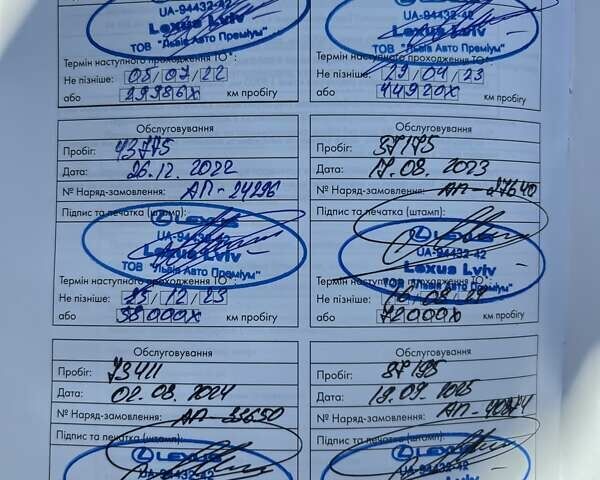 UA-94432-42
Lexus Lviv
ТОВ "Львів Авто Преміум"
Термін наступного проходження ТО*:
Не пізніше: 08/07/22
або 29986X км пробігу
UA-94432-42
Lexus Lviv
ТОВ "Львів Авто Преміум"
Термін наступного проходження ТО*:
Не пізніше: 29/04/23
або 44920X км пробігу
Обслуговування
Пробіг: 43775
Дата: 26.12.2022
№ Наряд-замовлення: АП-24296
Підпис та печатка (штамп):
LEXUS
UA-94432-42
Lexus Lviv
ТОВ "Львів Авто Преміум"
Термін наступного проходження ТО*:
Не пізніше: 25/12/23
або 58000X км пробігу
Обслуговування
Пробіг: 57175
Дата: 17.08.2023
№ Наряд-замовлення: АП-27640
Підпис та печатка (штамп):
LEXUS
UA-94432-42
Lexus Lviv
ТОВ "Львів Авто Преміум"
Термін наступного проходження ТО*:
Не пізніше: 16/08/24
або 72000X км пробігу
Обслуговування
Пробіг: 73411
Дата: 02.08.2024
№ Наряд-замовлення: АП-33650
Підпис та печатка (штамп):
LEXUS
UA-94432-42
Lexus Lviv
Обслуговування
Пробіг: 87195
Дата: 19.09.2025
№ Наряд-замовлення: АП-40874
Підпис та печатка (штамп):
LEXUS
UA-94432-42
Lexus Lviv